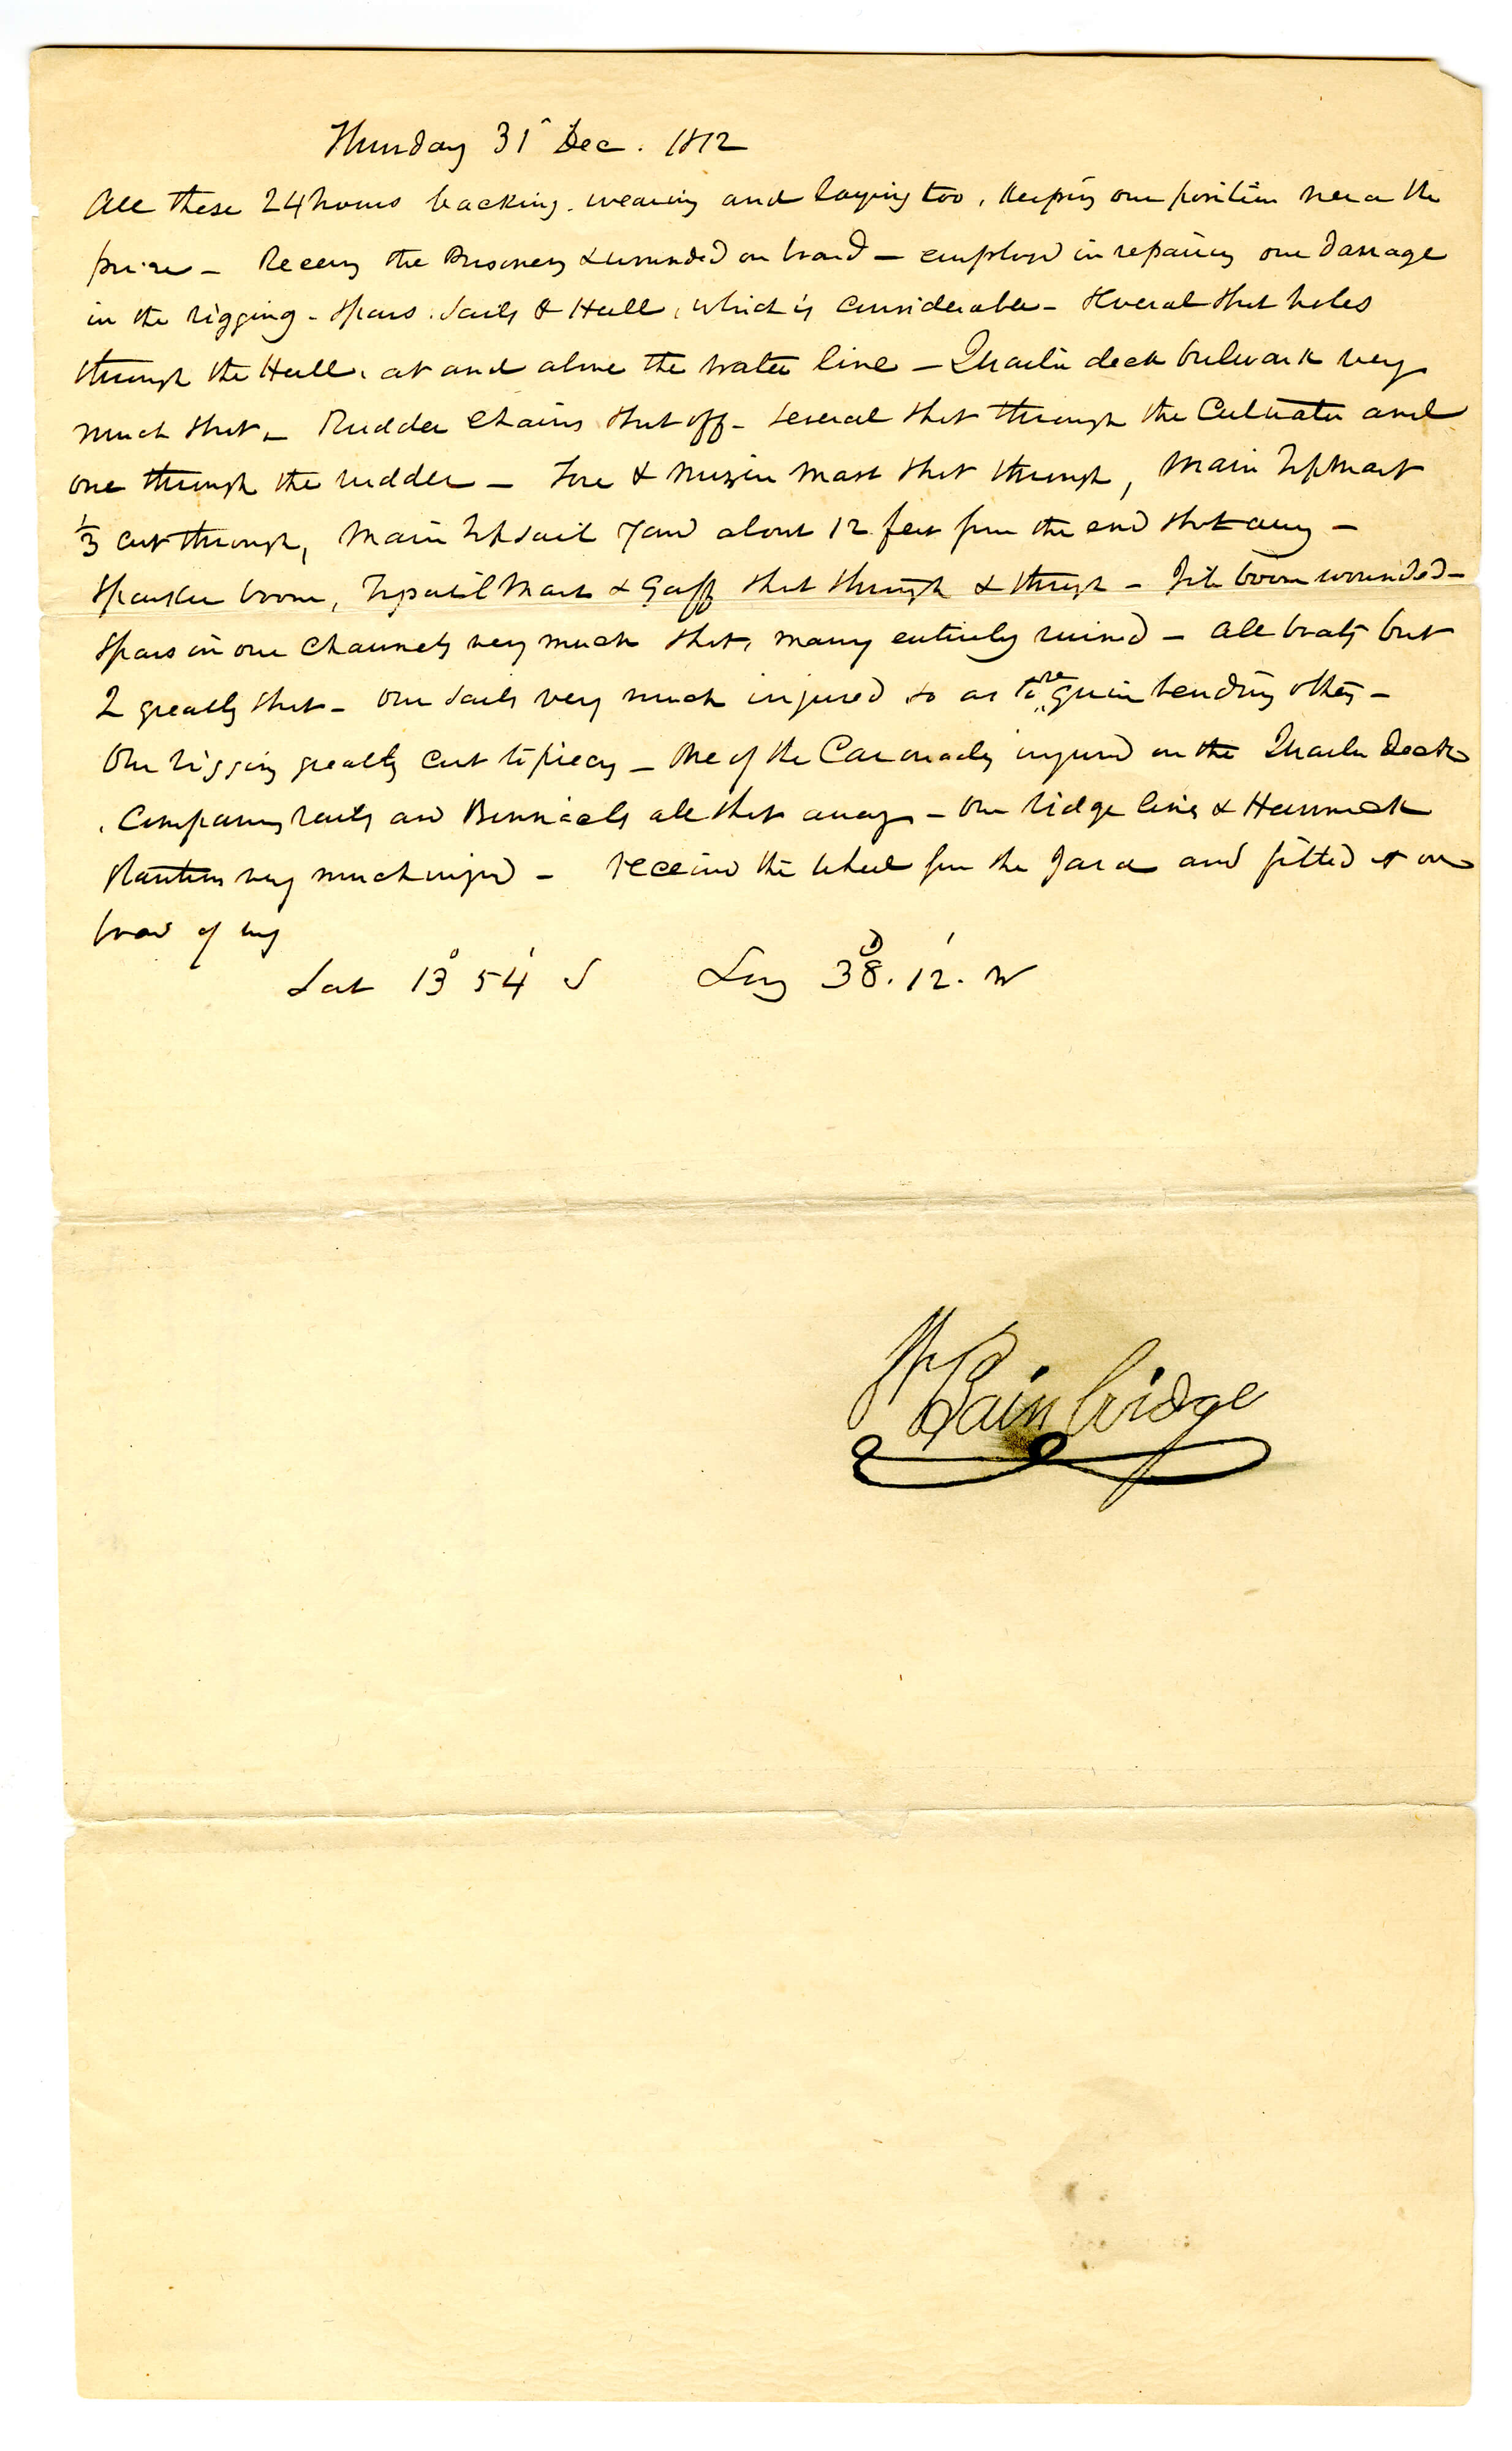 Thursday 31 Dec. 1812
All these 24 hours backing, wearing and laying too, keeping our position near the
prize – Receing the Prisoners & wounded on board – employd in repairing our damage
in the rigging – spars, sails & Hull, which is considerable – several shot holes
through the Hull, at and above the water line – Quarter deck bulwark very
much shot – Rudder chains shot off – several shot through the Cutwater and
one through the rudder – Fore & Mizen Mast shot through, Main Topmast
⅓ cut through, Main Topsail Yard about 12 feet from the end shot away –
Spanker boom, Trysail Mast & Gaff shot through & through – Jib boom wounded –
Spars in our channels very much shot, many entirely ruined – All boats but
2 greatly shot – Our sails very much injured so as to require bending others –
Our rigging greatly cut to pieces – One of the Carronades injured on the Quarter Deck
Companion rails and Binnacls all shot away – Our ridge lines & Hammock
Stantions very much injurd – Received the wheel from the Java and fitted it on
board of us
Lat 13° 54' S Long 38°. 12'. W
Wm Bainbridge